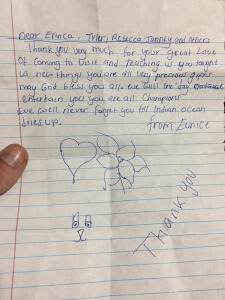 Dear Erinca, Tyler, Rebecca Jannety and others
Thank you very much for your great Love
Of coming to visit and teaching us you taught
us new things you are all very precious gifts
may God bless you all. we will one day
entertain you you are all Champions
we well never forget you till Indian ocean
dries up.
from Eunice
Thank you